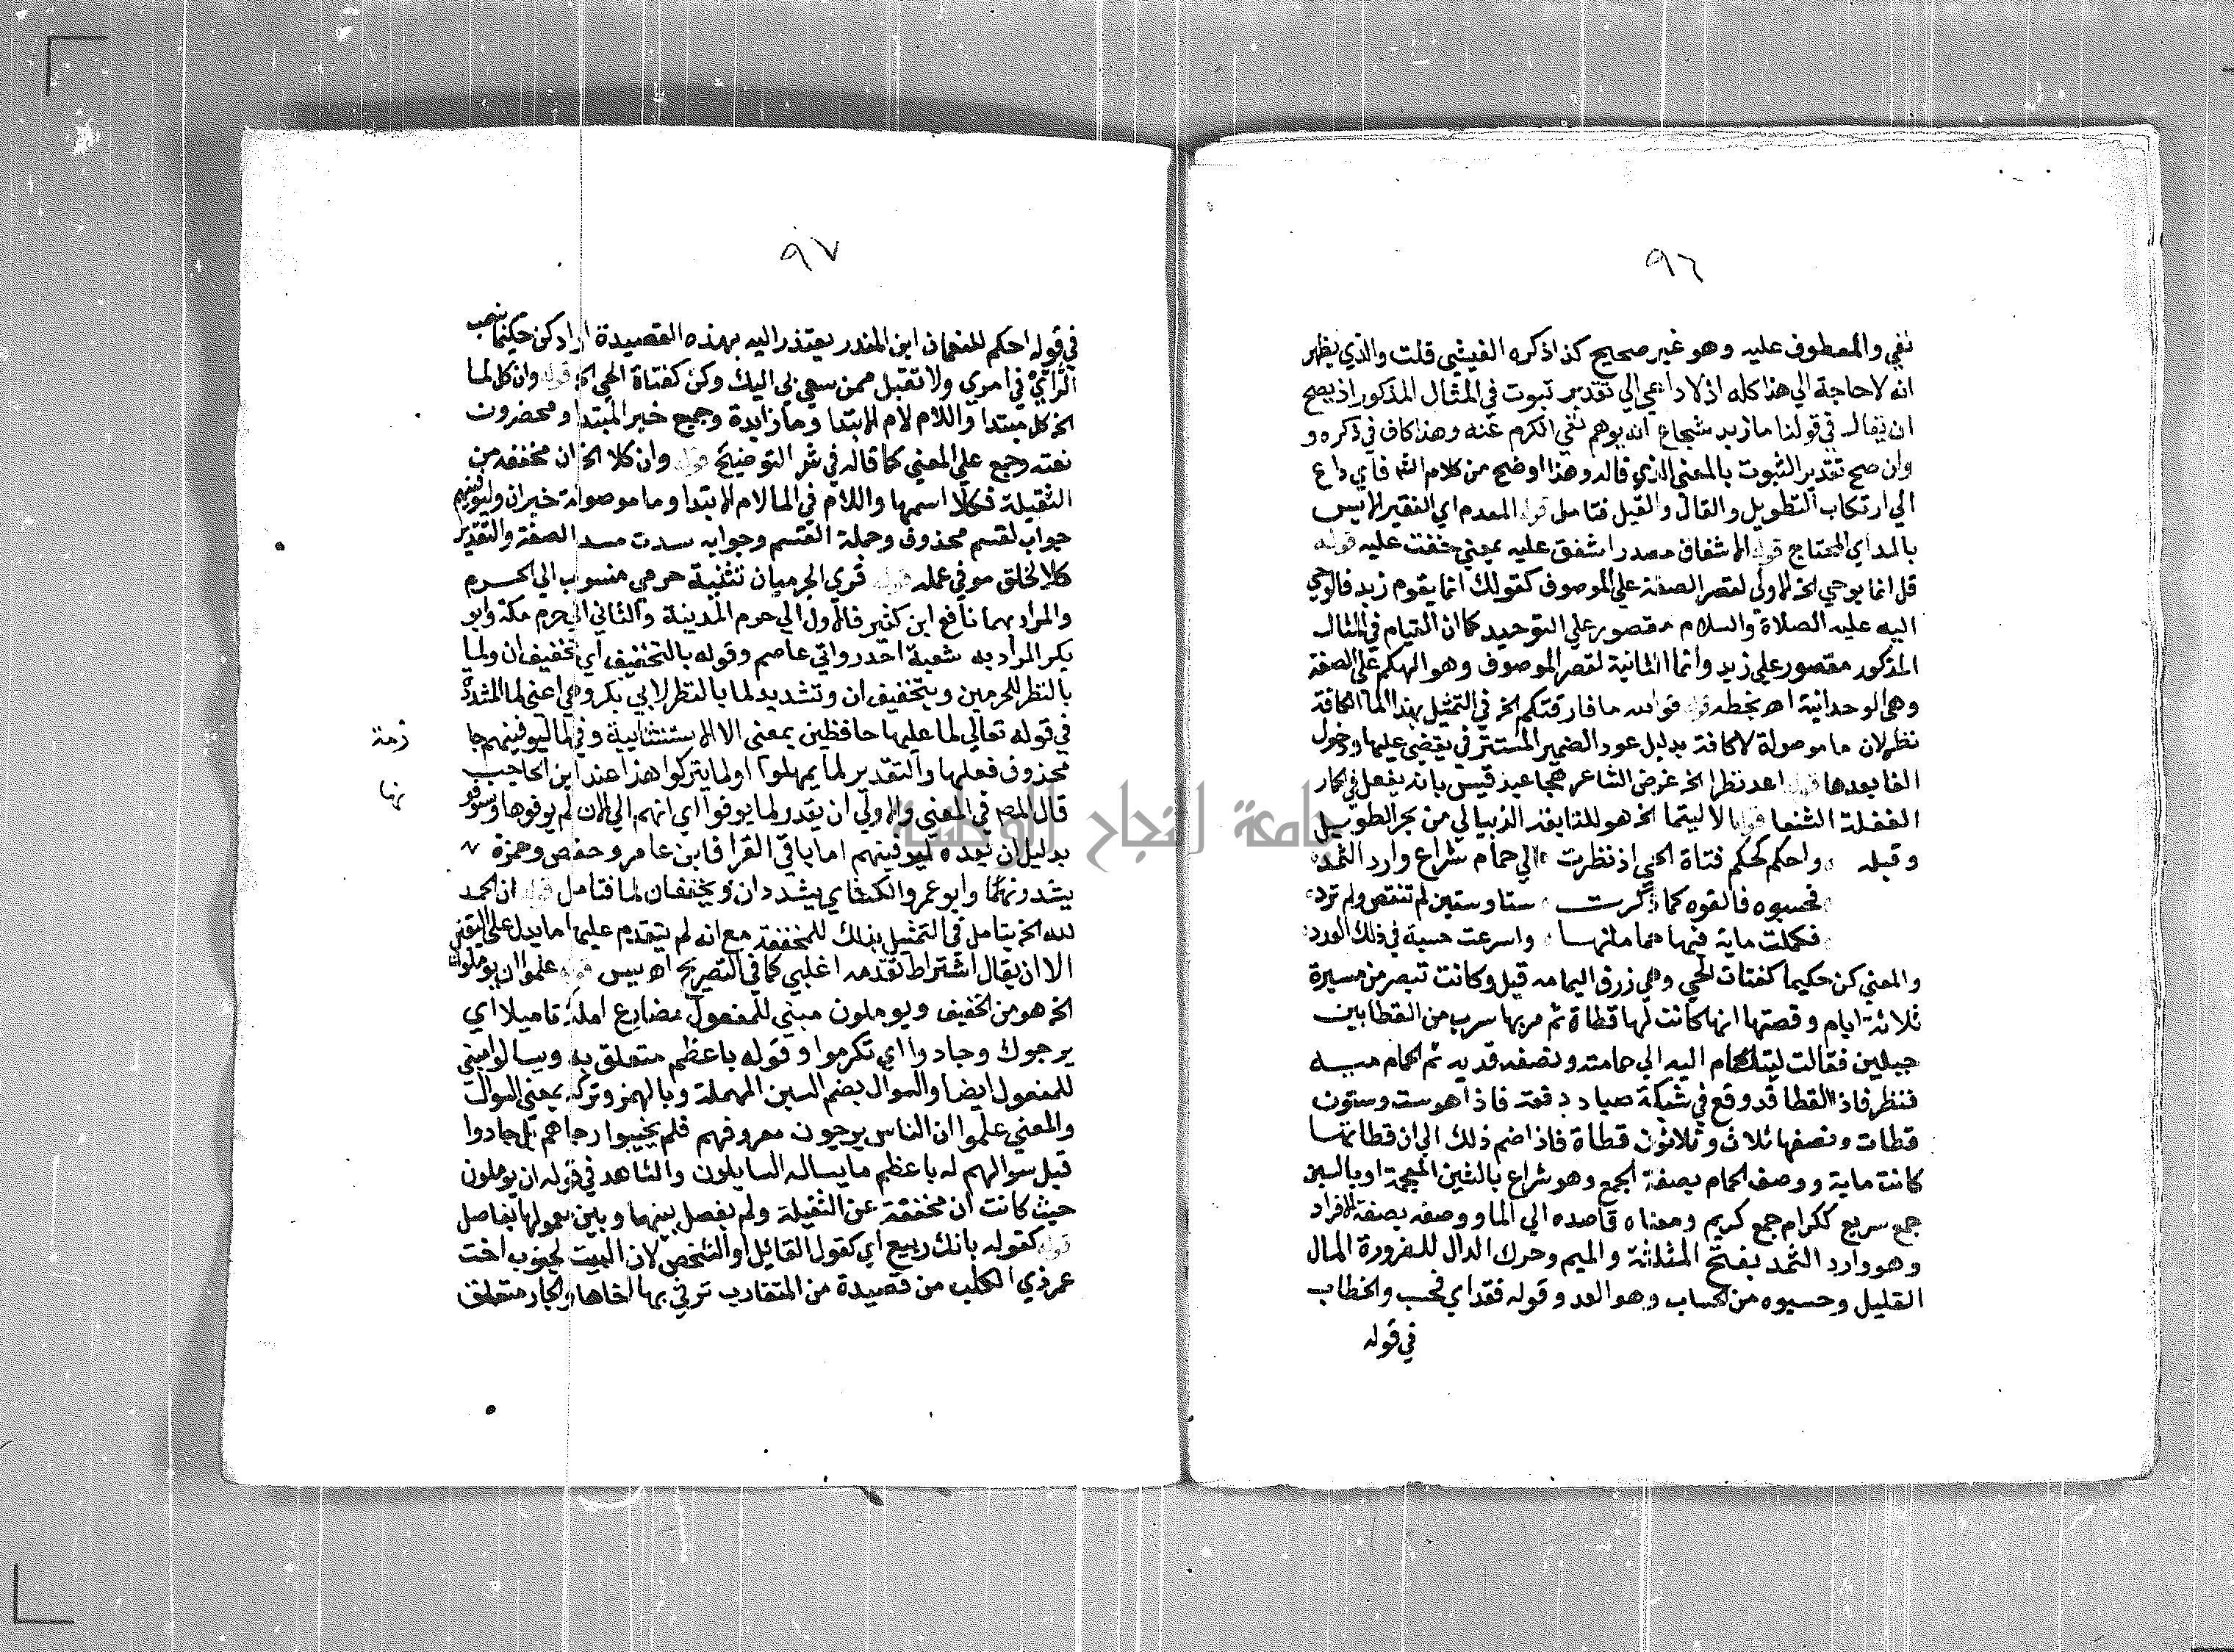 ٩٦
نفي والمعطوف عليه وهو غير صحيح كذا ذكره الفيشي قلت والذي يظهر
انه لا حاجة الي هذا كله اذ لا داعي الي تقدير ثبوت في المثال المذكور اذ يصح
ان يقال في قولنا ما زيد شجاع انه يوهم نفي الكرم عنه وهذا كاف في ذكره و
وان صح تقدير الثبوت بالمعنى الذي قاله وهذا اوضح من كلام الش فاي داع
الي ارتكاب التطويل والقال والقيل فتامل قوله المعدم اي الفقير الايس
بالمد اي المحتاج قوله الاشفاق مصدر اشفق عليه بمعني خفت عليه قوله
قل انما يوحي الخ الاولي لقصر الصفة علي الموصوف كقولك انما يقوم زيد فالوحي
اليه عليه الصلاة والسلام مقصور علي التوحيد كما ان القيام في المثال
المذكور مقصور علي زيد وانما الثانية لقصر الموصوف وهو الهكم علي الصفة
وهي الوحدانية اه بخطه قوله فوالله ما فارقتكم الخ في التمثيل بهذا لما الكافة
نظر لان ما موصولة لا كافة بدليل عود الضمير المستتر في يقضي عليها ودخول
الفا بعدها قوله اعد نظرا الخ غرض الشاعر هجا عبد قيس بانه يفعل في الحمار
الفعلة الشنعا قوله الا ليتما الخ هو للنابغة الذبياني من بحر الطويل
وقبله واحكم كحكم فتاة الحي اذ نظرت الي حمام شراع وارد الثمد
فحسبوه فالفوه كما ذكرت ستا وستين لم تنقص ولم تزد
فكملت ماية فيها حمامتها واسرعت حسبة في ذلك العدد
والمعني كن حكيما كفتات الحي وهي زرق اليمامه قيل وكانت تبصر من مسيرة
ثلاثة ايام وقصتها انها كانت لها قطاة ثم مر بها سرب من القطا بين
جبلين فقالت ليت الحمام ليه الي حمامته ونصفه قديه تم الحمام ميه
فنظر فاذا القطا قد وقع في شبكة صياد فاذا هو ست وستون
قطات ونصفها ثلاث وثلاثون قطاة فاذا ضم ذلك الي ان قطاتها
كانت ماية ووصف الحمام بصفة الجمع وهو شراع بالشين المعجمة او بالسين
جمع سريع ككرام جمع كريم ومعناه قاصده الي الما ووصفه بصفة الافراد
وهو وارد الثمد بفتح المثلثة والميم وحرك الدال للضرورة المال
القليل وحسبوه من الحساب وهو العد وقوله فقد اي فحسب والخطاب
في قوله
٩٧
في قوله احكم للنعمان ابن المنذر يعتذر اليه بهذه القصيدة اراد كن حكيما بنصب
الرأي في امري ولا تقبل ممن سعي بي اليك وكن كفتاة الحي الخ قوله وان كل لما
الخ كل مبتدا واللام لام الابتدا وما زايدة وجميع خبر المبتدا ومحضرون
نعته وجمع علي المعني كما قاله في شر التوضيح قوله وان كلا الخ ان مخففه من
الثقيلة فكلا اسمها واللام في لما لام الابتدا وما موصولة خبر ان وليوفينهم
جواب لقسم محذوف وجملة القسم وجوابه سدت مسد الصفة والتقدير
كلا لخلق موفي عمله قوله قري الحرميان تثنية حرمي منسوب الي الحرم
والمراد بهما نافع ابن كثير فالاول الي حرم المدينة والثاني الي حرم مكة وابو
بكر المراد به شعبة احد رواتي عاصم وقوله بالتخفيف اي تخفيف ان ولما
بالنظر للحرمين وبتخفيف ان وتشديد لما بالنظر لابي بكر وهي اعني لما المشددة
في قوله تعالي لما عليها حافظ بمعني الا الاستثنايية وفي لما ليوفينهم جا
زمة
محذوف فعلها والتقدير لما يهملوا او لما يتركوا هذا عند ابن الحاجب
نها
قال المص في المعني والاولي ان يقدر لما يوفوا اي انهم الي الان لم يوفوها وسوف
بدليل ان بعده ليوفينهم اما باقي القرا فابن عامر وحفص وحمزة
يشددنهما وابو عمرو والكسائي يشددان ويخففان لما فتامل قوله ان الحمد
لله الخ يتامل في التمثيل بذلك للمخففة مع انه لم يتقدم عليها ما يدل علي اليقين
الا ان يقال اشتراط تقدمه اغلبي كما في التصريح اه يس قوله علموا ان يوملون
الخ هو من الخفيف ويوملون مبني للمفعول مضارع امله تاميلا اي
يرجوك وجادوا اي تكرموا وقوله باعظم متعلق به ويسالوا مبني
للمفعول ايضا والسوال بضم السين المهملة وبالهمز وتركه بمعني السوال
والمعني علموا ان الناس يرجون معروفهم فلم يخيبوا رجاهم بل جادوا
قبل سوالهم له باعظم ما يساله السايلون والشاهد في قوله ان يوملون
حيث كانت ان مخففة عن الثقيلة ولم يفصل بينها وبين معمولها بفاصل
قوله كقوله بانك ربيع اي كقول القائل او الشخص لان البيت لجنوب اخت
عمر ذي الكلب من قصيدة من المتقارب ترثي بها اخاها والجار متعلق
جامعة النجاح الوطنية